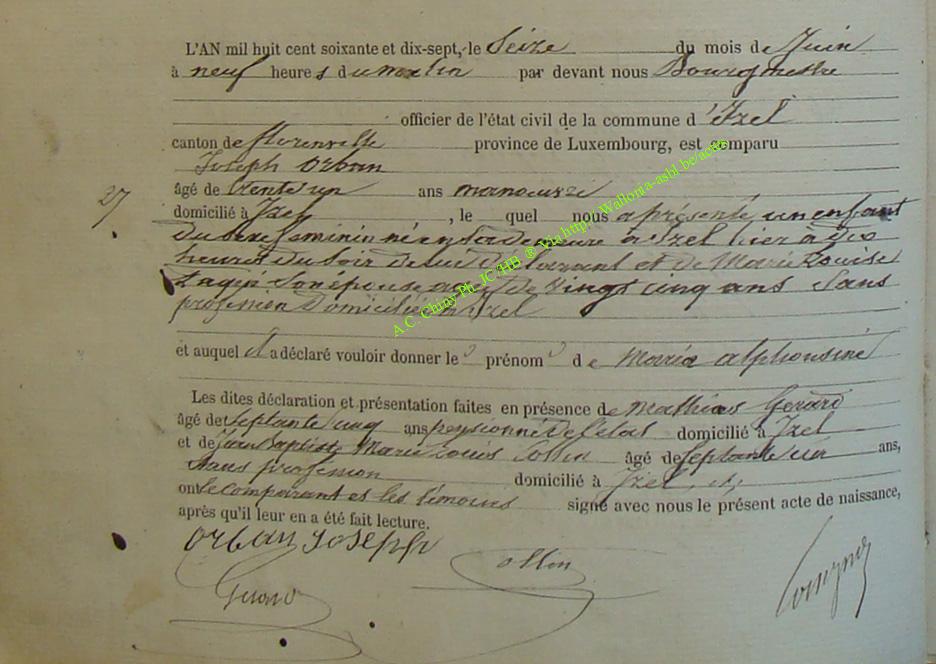 L'AN mil huit cent soixante et dix-sept, le Seize du mois de Juin
à neuf heures du matin par devant nous Bourgmestre
officier de l'état civil de la commune d'Izel
canton de florenville province de Luxembourg, est comparu
Joseph Orban
27 âgé de trente un ans manoeuvre
domicilié à Izel, le quel nous a présenté un enfant
du sexe féminin né en sa demeure à Izel hier à dix
heures du soir de lui déclarant et de Marie Louise
son épouse agée de vingt cinq ans Sans
profession domiciliée à Izel
et auquel il a déclaré vouloir donner le prénom de Maria alphonsine
Les dites déclaration et présentation faites en présence de Mathias Gerard
âgé de Septante cinq ans pensionné de l'état domicilié à Izel
et de Jean Baptiste Marie Louis Collin âgé de Septante un ans,
sans profession domicilié à Izel, et,
ont le comparant et les témoins signé avec nous le présent acte de naissance,
après qu'il leur en a été fait lecture.
Orban Joseph
Collin
Gerard
A.C. Chiny Ph. JC/HB @ Via http:\\Wallonia-asbl.be/actes